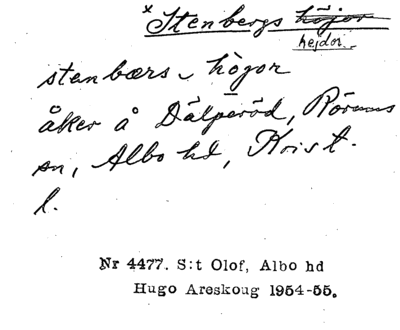 × Stenbergs höjor
hejdor
stenbærs höġor
åker å Dälperöd, Rörums
sn, Albo hd, Krist.
l.
Nr 4477. S:t Olof, Albo hd
Hugo Areskoug 1954-55.